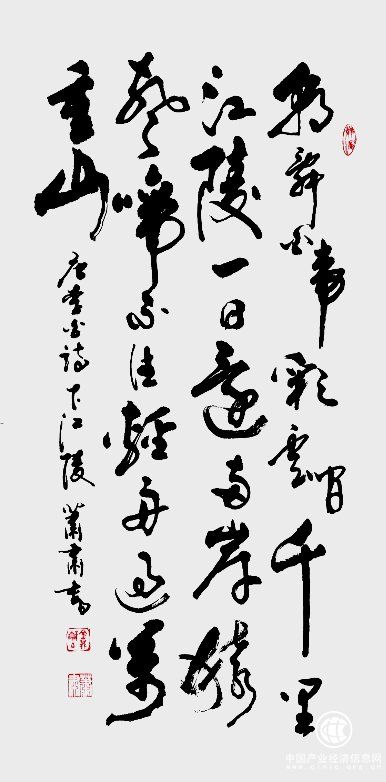 朝辭白帝彩雲間千里
江陵一日還兩岸猿
聲啼不住輕舟過萬
重山
唐李白詩下江陵
蕭肅書
中国产业经济信息网
www.cinic.org.cn